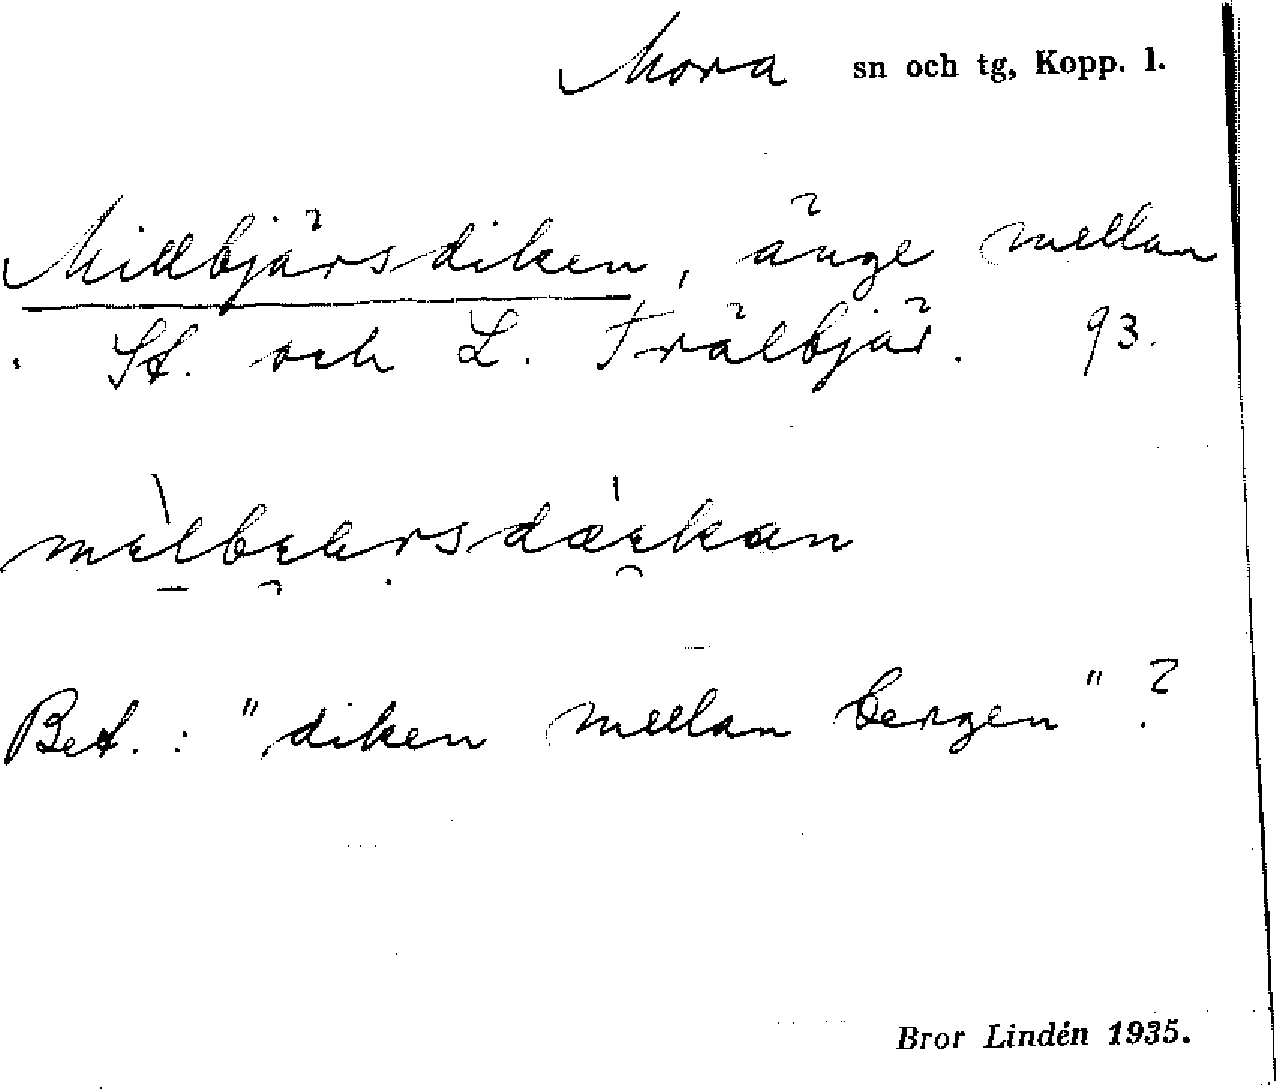 Mora sn och tg, Kopp. l.
Millbjärsdiken, änge mellan
St. och L. Trälbjär. 93.
Bet.: "diken mellan bergen"?
Bror Lindén 1935.